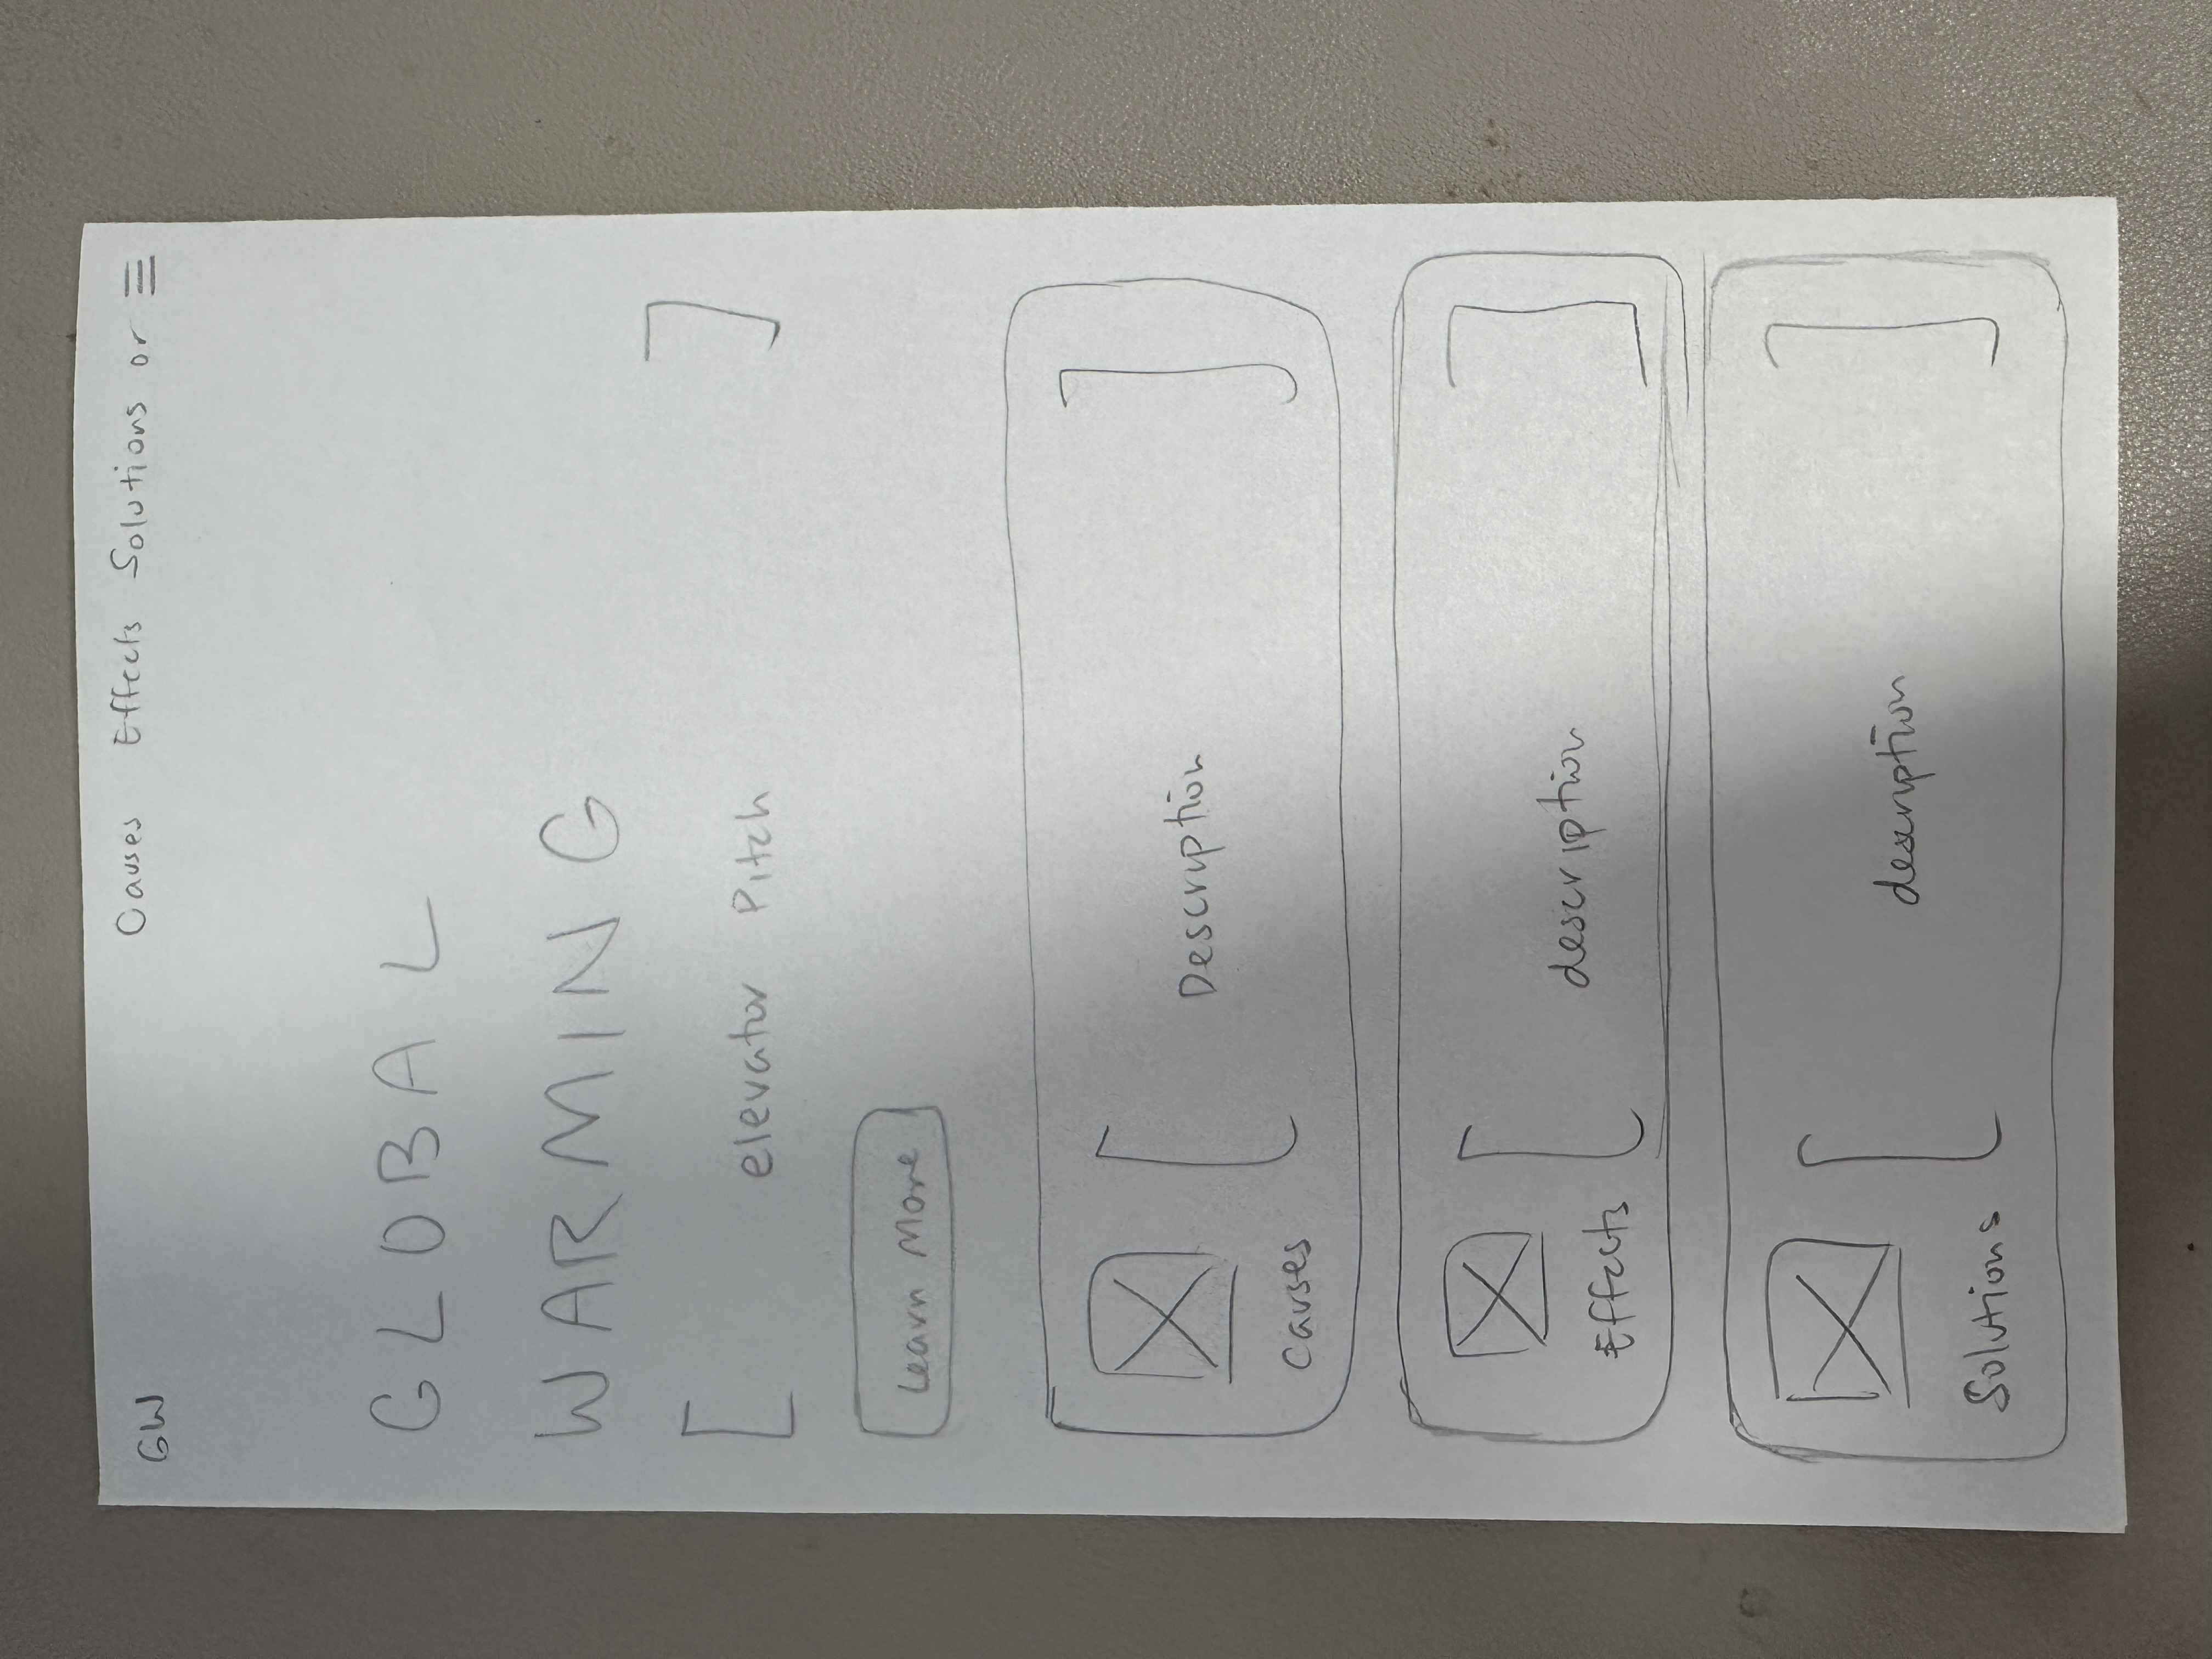 GW
Causes Effects Solutions or
GLOBAL
WARMING
elevator Pitch
Learn More
Description
Causes
description
Effects
description
Solutions